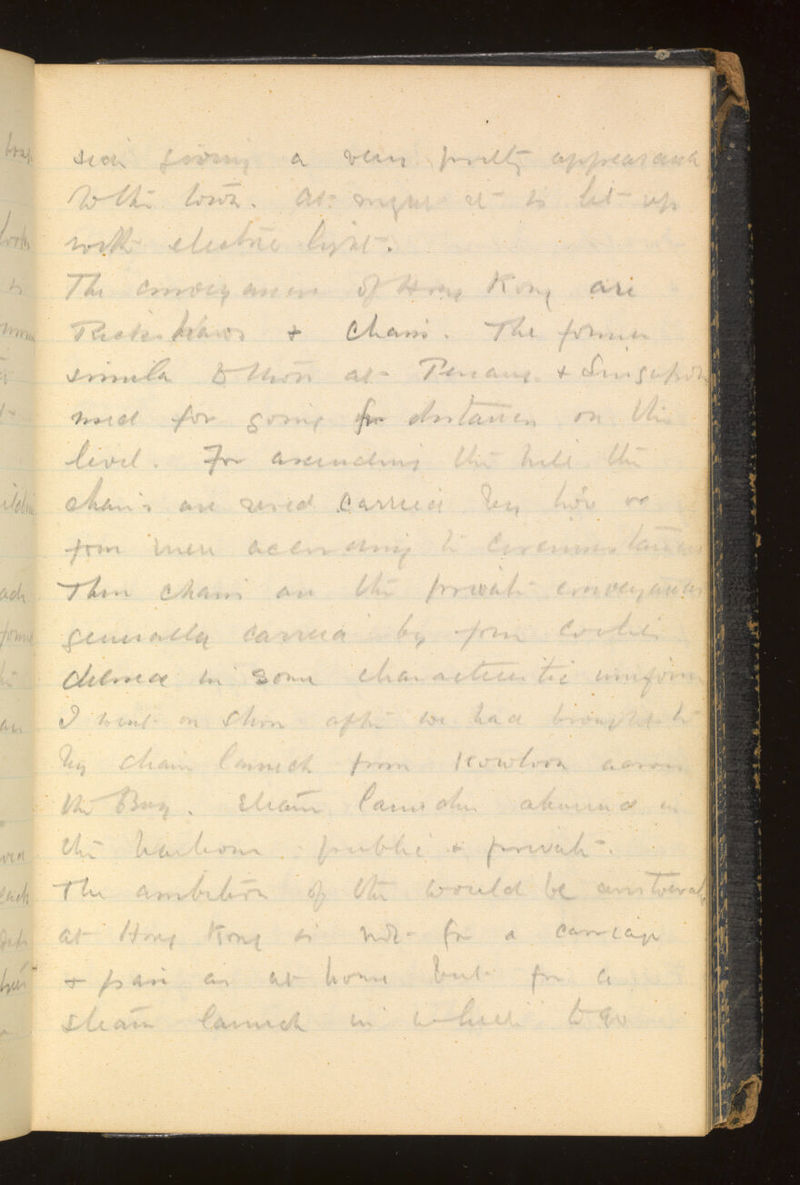 side giving a very pretty appearance
to the town. At night it is lit up
with electric light.
The conveyances of Hong Kong are
Rickshaws & Chairs. The former
similar to those at Penang & Singapore
used for going for distances on the
level. For ascending the hill the
chairs are used carried by two or
four men according to circumstances
These chairs are the private conveyances
generally carried by four coolies
dressed in some characteristic uniform
I went on shore after we had brought to
by steam launch from Kowloon across
the Bay. Steam launches abound in
the harbour public & private.
The ambition of the would be aristocrat
at Hong Kong is not for a carriage
& pair as at home but for a
steam launch in which to go